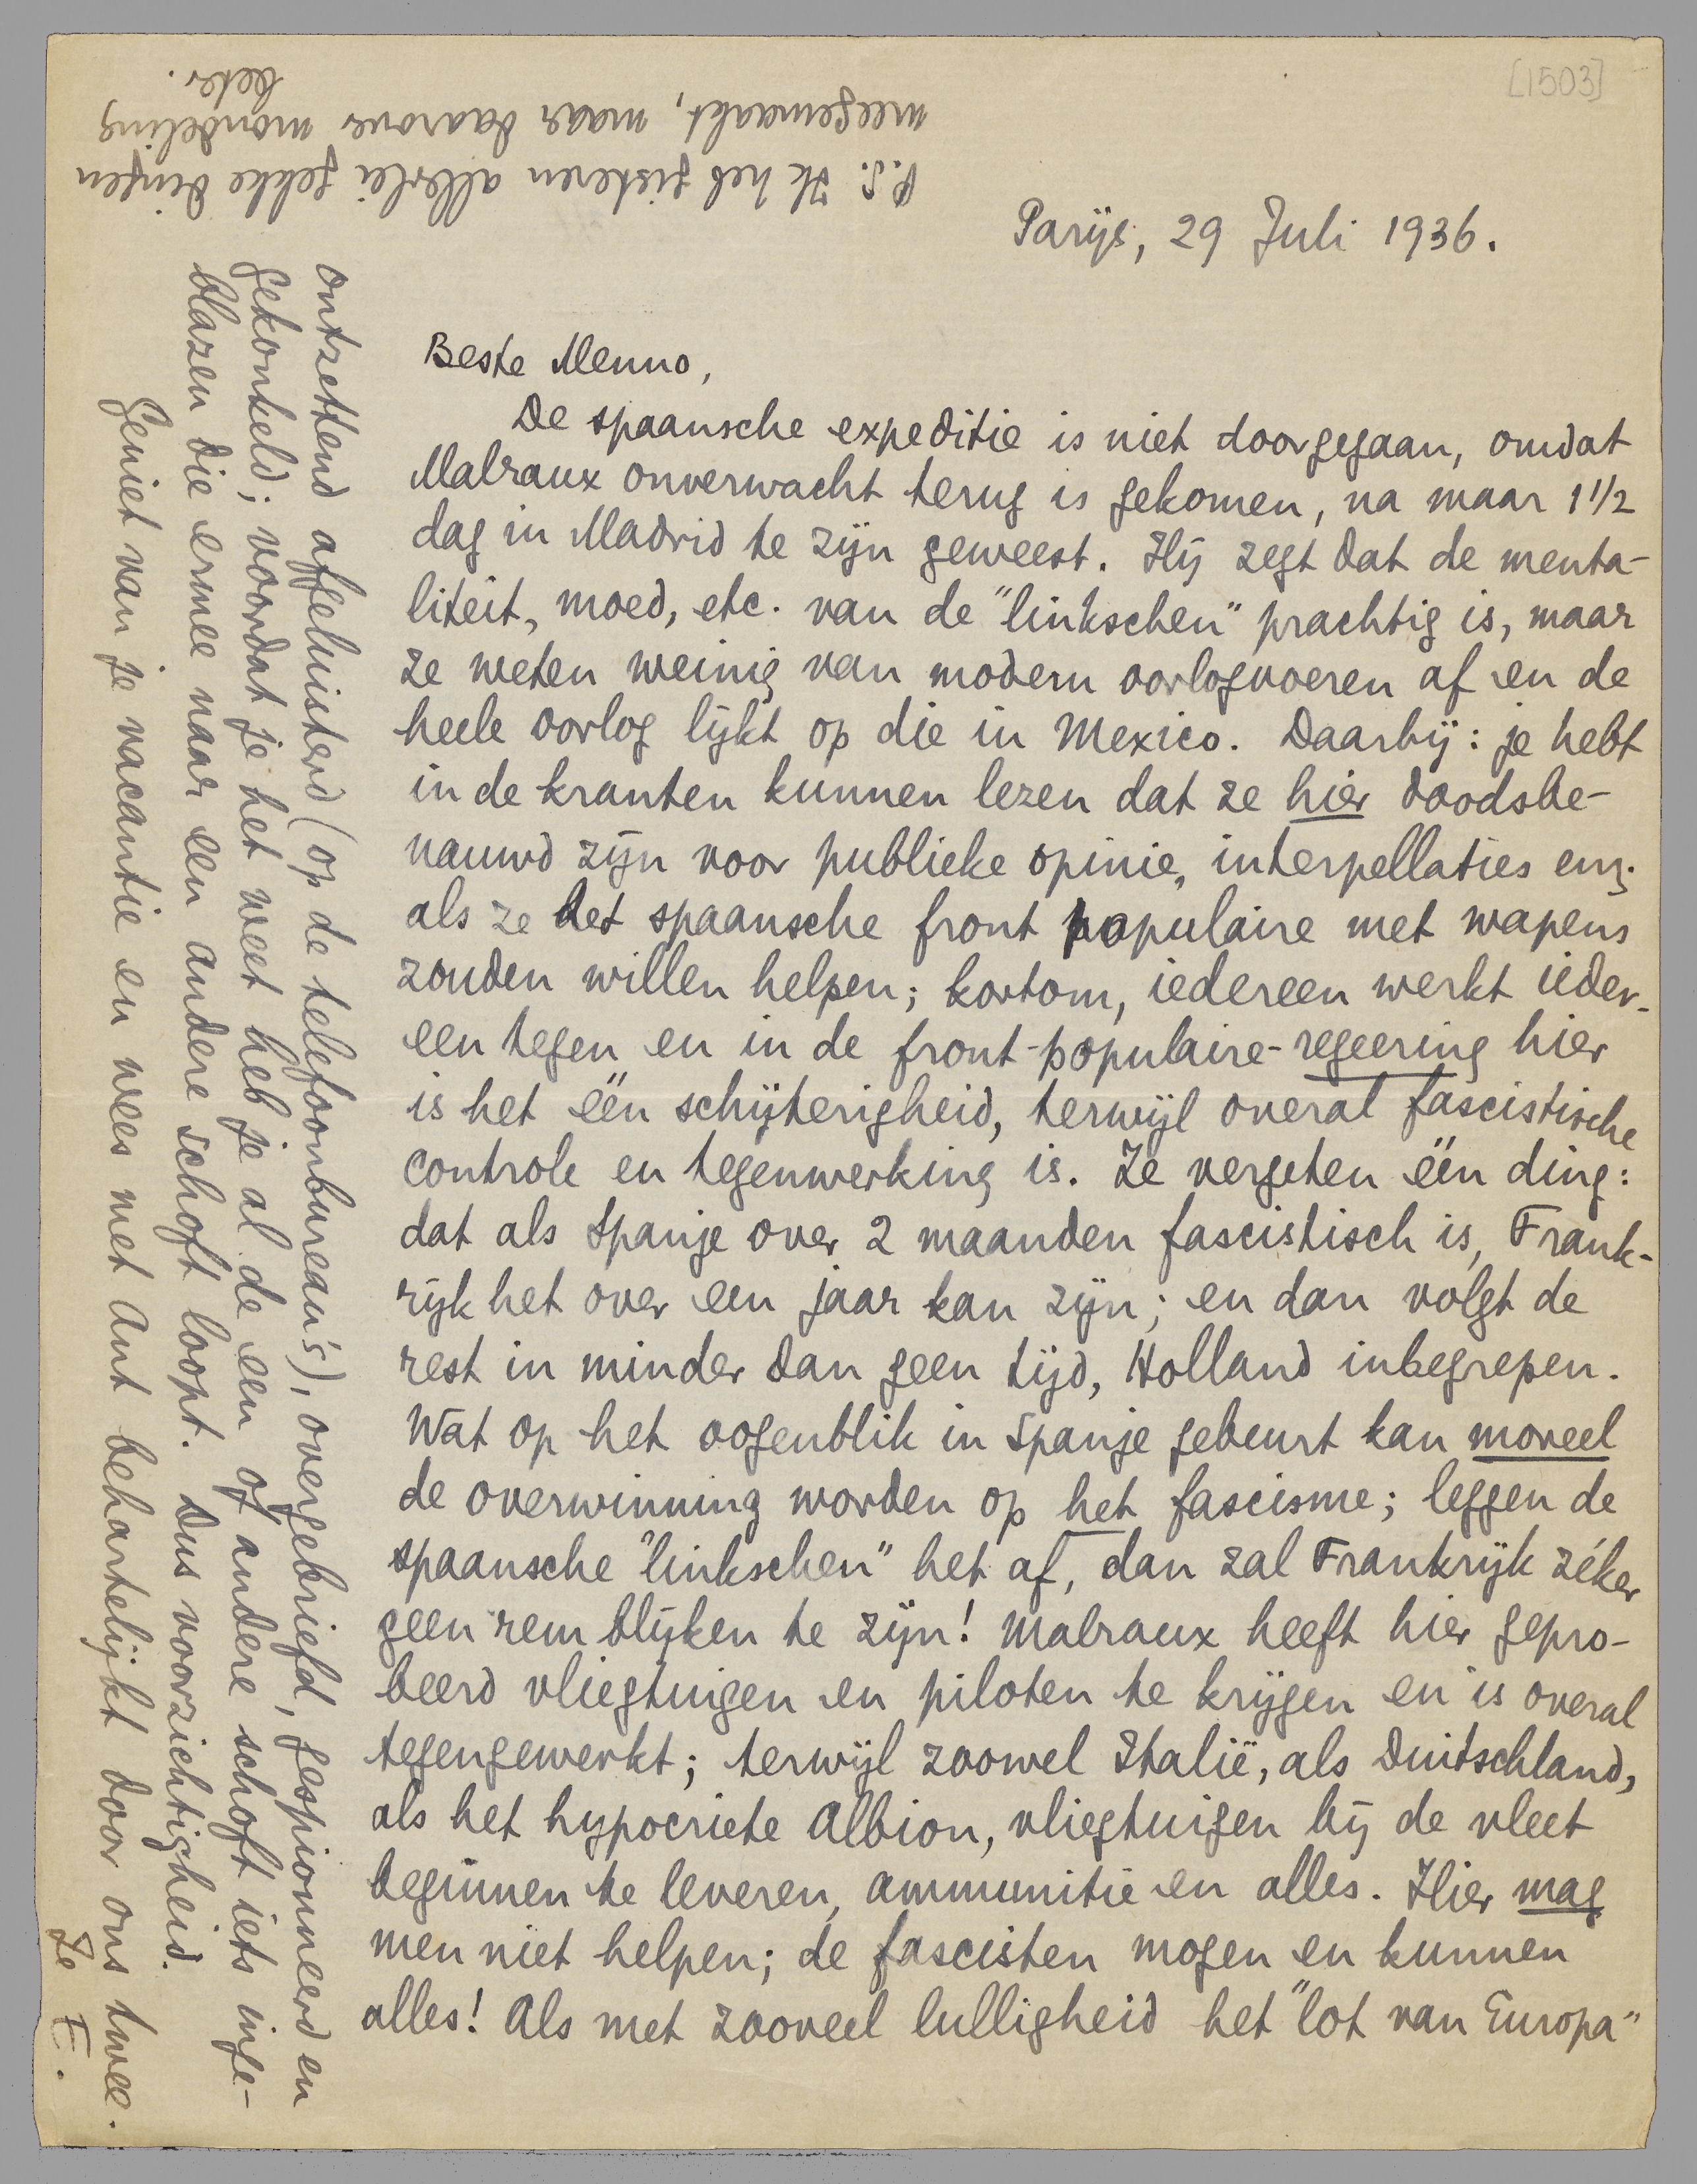 [1503]
Parijs, 29 Juli 1936.
Beste Menno,
De spaansche expeditie is niet doorgegaan, omdat
Malraux onverwacht terug is gekomen, na maar 1 1/2
dag in Madrid te zijn geweest. Hij zegt dat de menta-
liteit, moed, etc. van de "linkschen" prachtig is, maar
ze weten weinig van modern oorlogvoeren af en de
heele oorlog lijkt op die in Mexico. Daarbij: je hebt
in de kranten kunnen lezen dat ze hier doodsbe-
nauwd zijn voor publieke opinie, interpellaties enz.
als ze het spaansche front populaire met wapens
zouden willen helpen; kortom, iedereen werkt ieder-
een tegen en in de front-populaire-regeering hier
is het één schijterigheid, terwijl overal fascistische
controle en tegenwerking is. Ze vergeten één ding:
dat als Spanje over 2 maanden fascistisch is, Frank-
rijk het over een jaar kan zijn; en dan volgt de
rest in minder dan geen tijd, Holland inbegrepen.
Wat op het oogenblik in Spanje gebeurt kan moreel
de overwinning worden op het fascisme; leggen de
spaansche "linkschen" het af, dan zal Frankrijk zéker
geen rem blijken te zijn! Malraux heeft hier gepro-
beerd vliegtuigen en piloten te krijgen en is overal
tegengewerkt; terwijl zoowel Italië, als Duitschland,
als het hypocriete Albion, vliegtuigen bij de vleet
beginnen te leveren, ammunitie en alles. Hier mag
men niet helpen; de fascisten mogen en kunnen
alles! Als met zooveel lulligheid het "lot van Europa"
ontzettend afgeluisterd (op de telefoonbureau's), overgebriefd, gespionneerd en
gekonkeld; voordat je het weet heb je al de een of andere schoft iets inge-
blazen die ermee naar een andere schoft loopt. Dus voorzichtigheid.
Geniet van je vacantie en wees met Ant behartelijkt door ons twee.
Je E.
P.S. Ik heb gisteren allerlei gekke dingen
meegemaakt, maar daarover mondeling
beter.